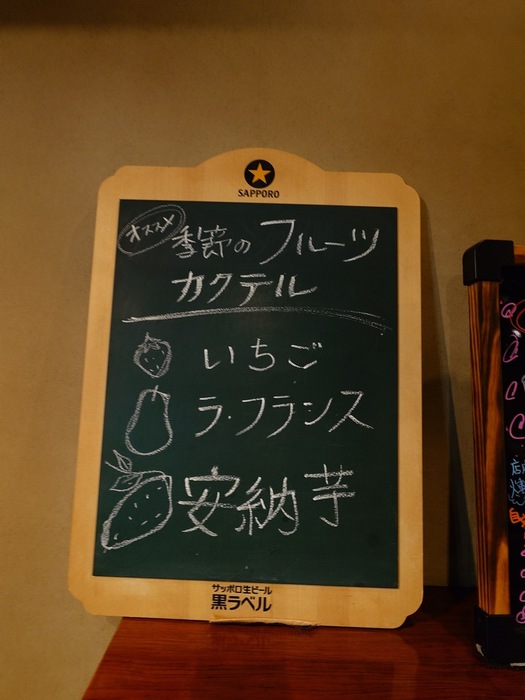 SAPPORO
オススメ 季節の フルーツ
カクテル
いちご
ラ・フランス
安納芋
サッポロ生ビール
黒ラベル